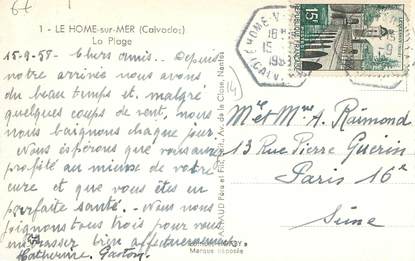 64
1 - LE HOME-sur-MER (Calvados)
La Plage
15-9-58 - Chers amis.. Depuis
notre arrivée nous avons
du beau temps et malgré
quelques coups de vent, nous
nous baignons chaque jour.
Nous espérons que vous avez
profité au mieux de votre
cure et que vous êtes en
parfaite santé. Nous nous
joignons tous trois pour vous
embrasser bien affectueusement
Catherine, Gaston,
Père et Fils, Av. de la Close, Nantes
Marque déposée
(14)
HOME-V
15
(CALV
15F
Mr et Mme A. Raimond
13 Rue Pierre Guérin
Paris 16e
Seine